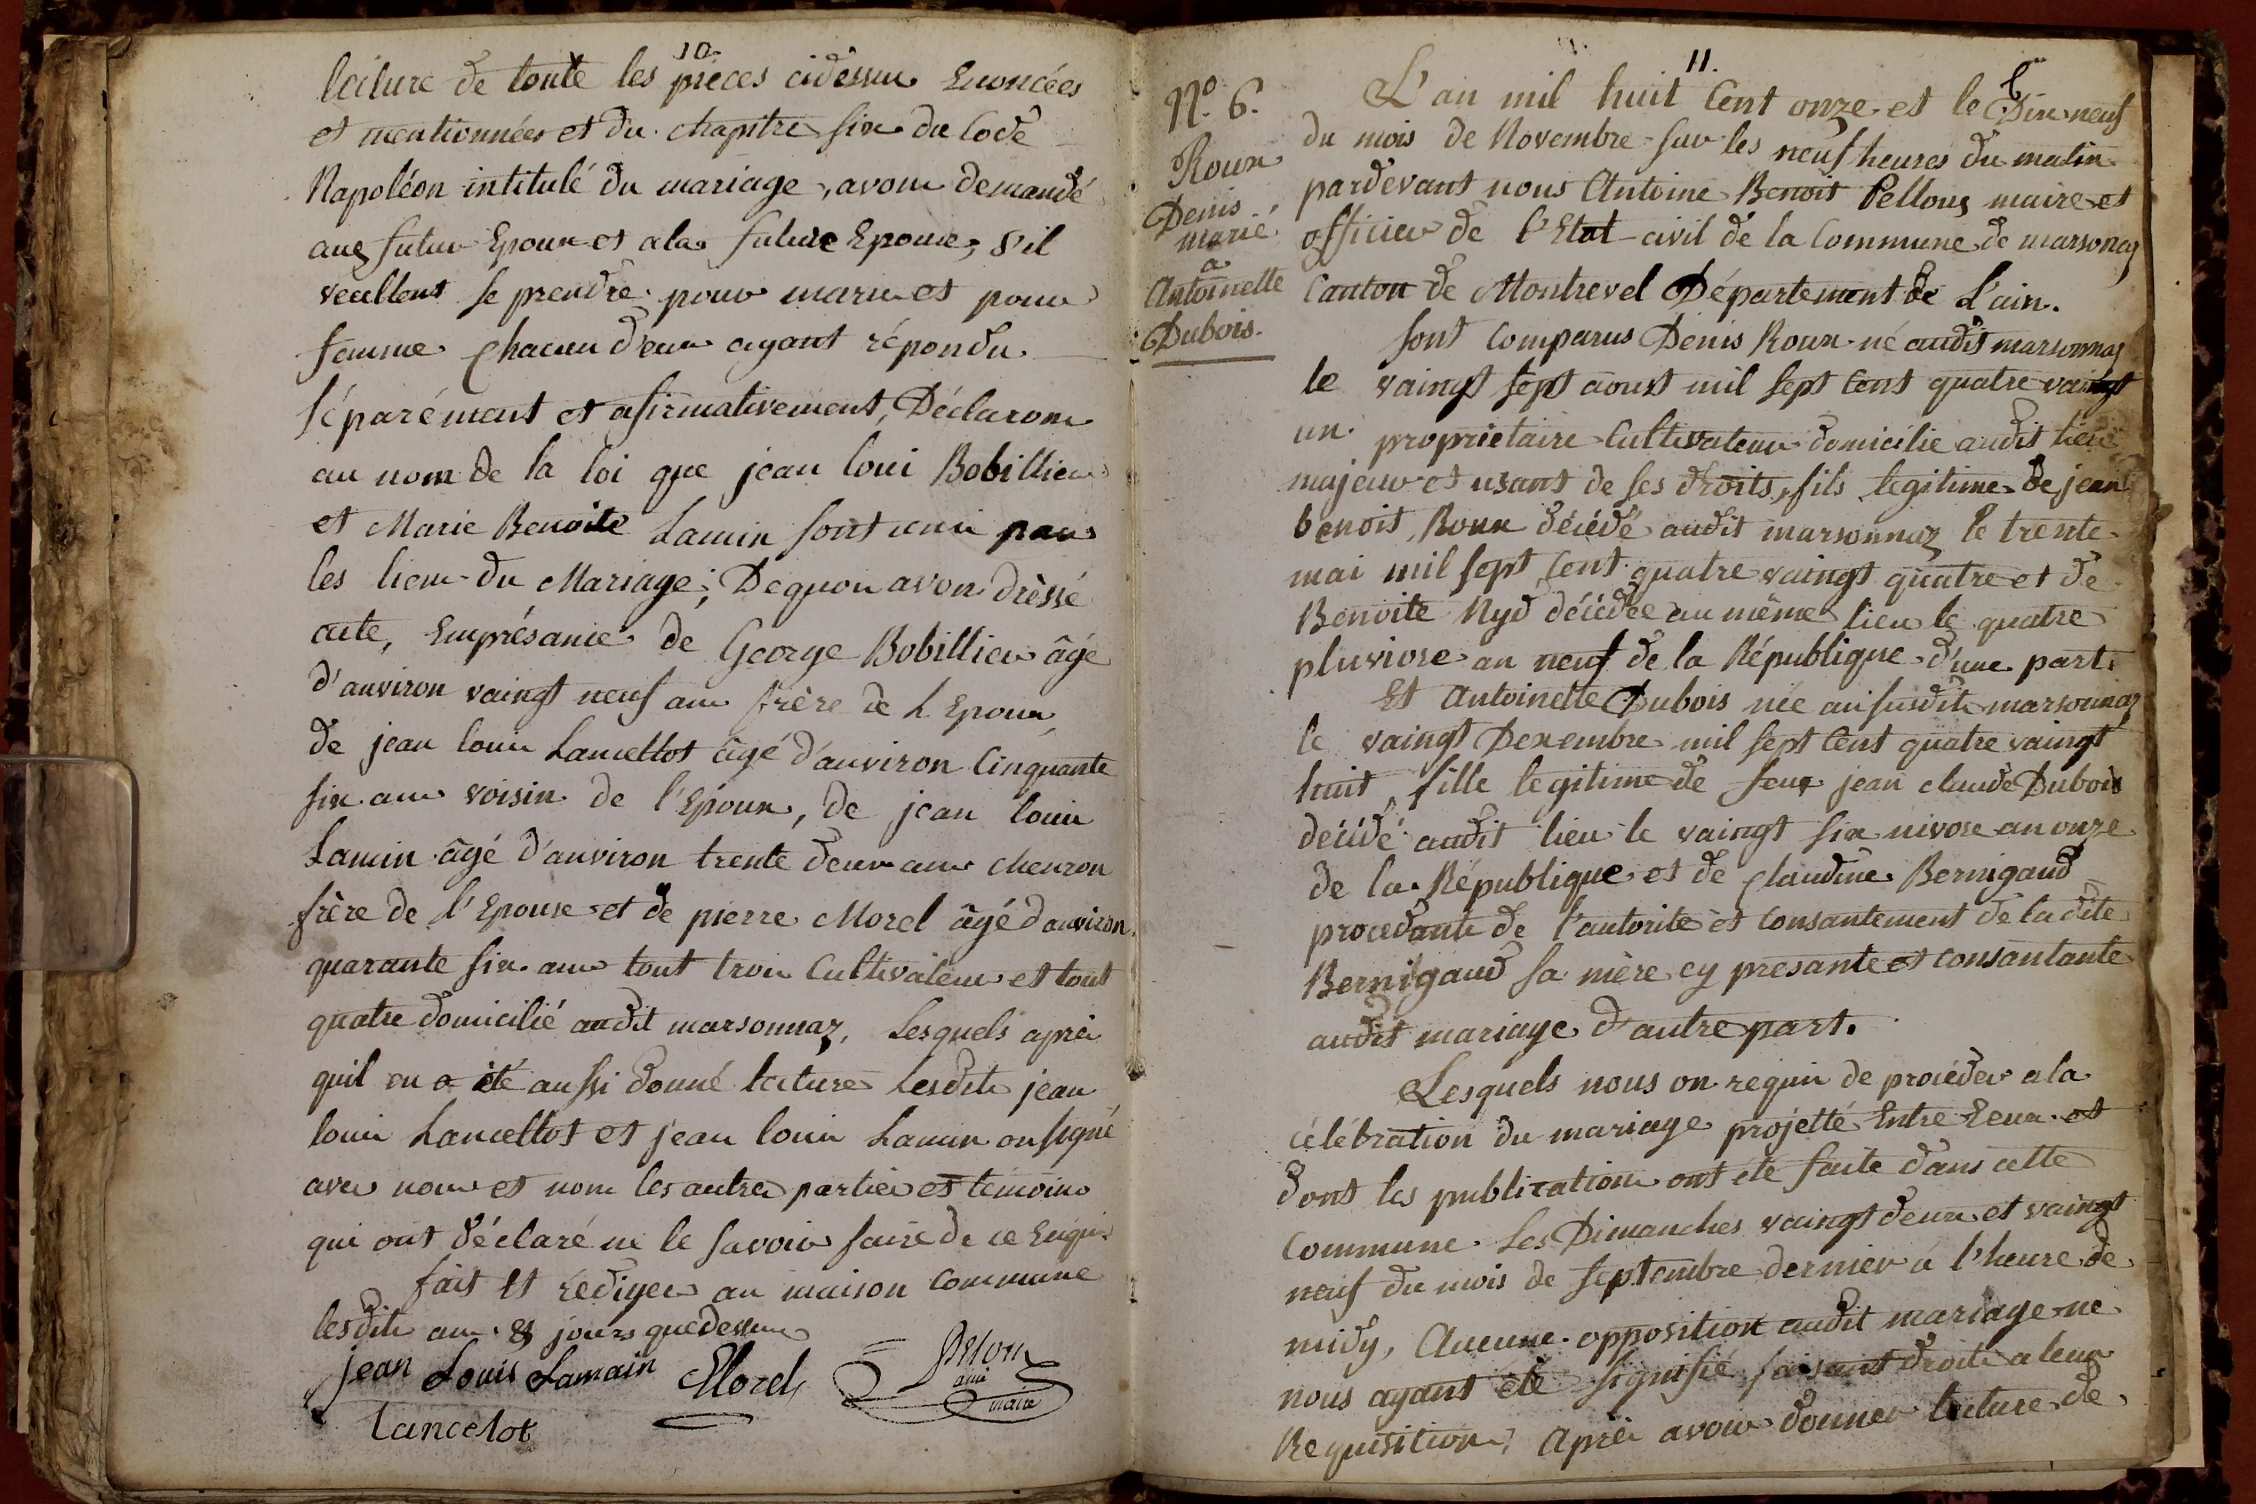 10.
lecture de toute les pièces cidessus Enoncées
et mentionnées et du chapitre six du Code
Napoléon intitulé du mariage, avons demandé
aux futur Epoux et ala future Epouse, s'il
veullent se prendre pour marie et pour
femme chacun d'eux ayant répondu
séparément et afirmativement, Déclarons
au nom de la loi que jean loui Bobillier
et Marie Benoite Lamin sont uni par
les liens du Mariage; Dequoi avons dressé
acte, Emprésance de George Bobillier âgé
d'anviron vaingt neuf ans frère de L'Epoux,
de jean louis Lancellot âgé d'anviron Cinquante
six ans voisin de l'Epoux, de jean louis
Lamin âgé d'anviron trente deux ans
frère de l'Epouse et de pierre Morel âgé d'anviron
quarante six ans tout trois Cultivateur et tout
quatre domicilié audit marsonnaz, Lesquels après
quil en a été aussi donné lecture Lesdits jean
louis Lancellot et jean louis Lamin on signé
avec nous et non les autres parties et témoins
qui ont déclaré ne le savoir faire de ce Enquis
fait et rediger an maison commune
lesdits an et jours quedessus
jean Louis Lamain Morel Pelou
maire
Lancelot
11.
N.° 6.
Roux
Denis
marié
a
Antoinette
Dubois.
L'an mil huit Cent onze et le Dix neuf
du mois de Novembre sur les neuf heures du matin
pardevant nous Antoine Benoit Pelloux maire et
officier de l'Etat civil de la Commune de marsonnaz
Canton de Montrevel Département de L'ain.
sont Comparus Denis Roux né audit marsonnaz
le vaingt sept aoust mil sept Cent quatre vaingt
un propriétaire Cultivateur domicilié audit lieu
majeur et usant de ses droits, fils legitime de jean
benoit Roux décédé audit marsonnaz le trente
mai mil sept cent quatre vaingt quatre et de
Benoite Nyd décédée au même lieu le quatre
pluviose an neuf de la République d'une part.
Et Antoinette Dubois née au susdit marsonnaz
le vaingt Dexembre mil sept Cent quatre vaingt
huit fille legitime de feux jean claude Dubois
décédé audit lieu le vaingt six nivose an onze
de la République et de claudine Bernigaud
procedante de l'autorité et consantement de ladite
Bernigaud sa mère cy presante et consantante
audit mariage d'autre part.
Lesquels nous on requis de procéder ala
célébration du mariage projetté Entre Eeux et
dont les publications ont été faite dans cette
Commune Les Dimanches vaingt deux et vaingt
neuf du mois de septembre dernier à l'heure de
midy, Aucune opposition audit mariage ne
nous ayant été signifié, faisant droit a leur
Requisition, Après avoir donner lecture de